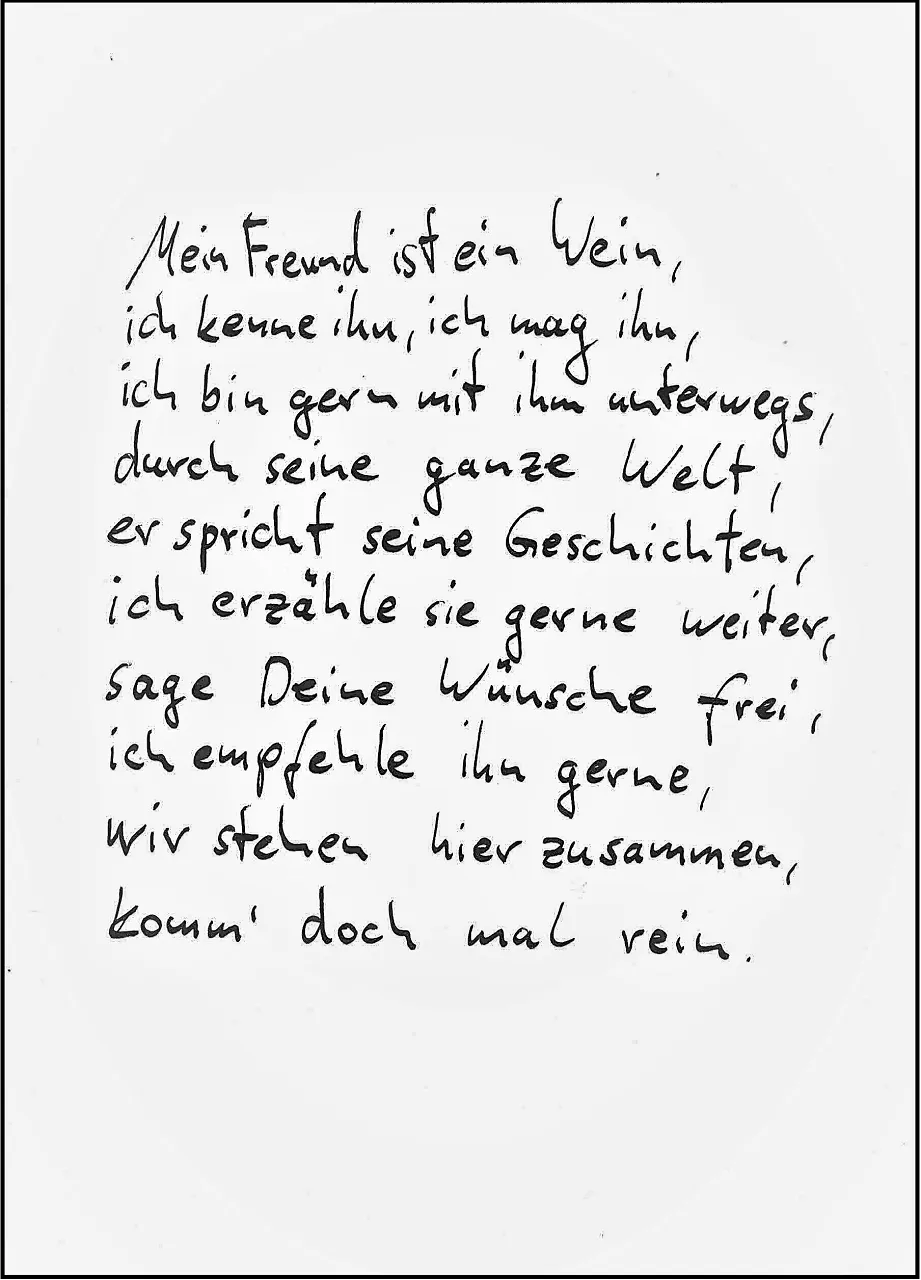 Mein Freund ist ein Wein,
ich kenne ihn, ich mag ihn,
ich bin gern mit ihm unterwegs,
durch seine ganze Welt,
er spricht seine Geschichten,
ich erzähle sie gerne weiter,
sage Deine Wünsche frei,
ich empfehle ihn gerne,
wir stehen hier zusammen,
komm' doch mal rein.